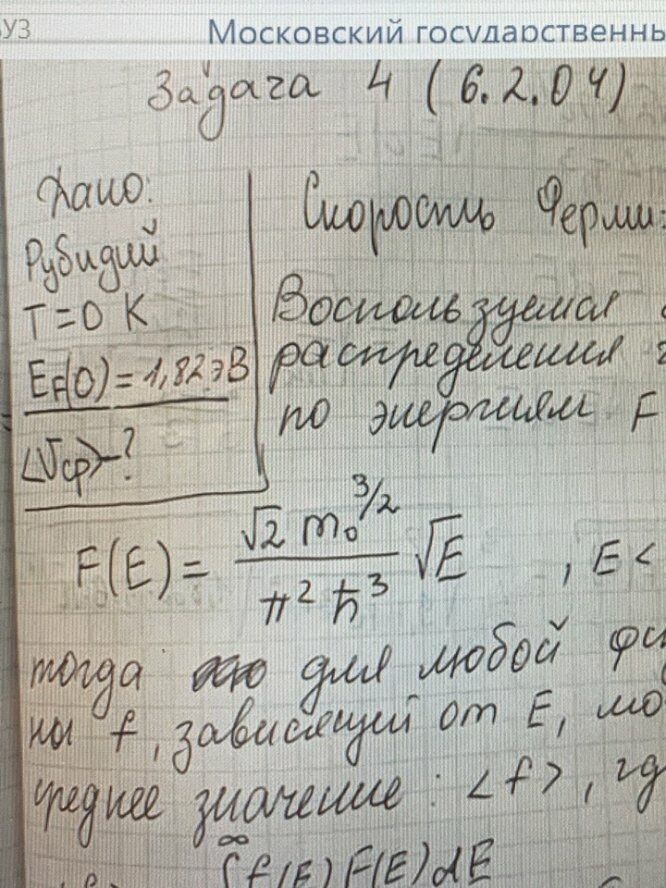 УЗ
Московский государственны
Задача 4 (6.2.04)
Дано:
Рубидий
T=0 K
E_F(0)=1,82эВ
<Vср>-?
Скорость Ферми.
Воспользуемся
распределения
по энергиям F
F(E) = √2 m₀^3/2 / π² ħ³ √E , E <
тогда для любой
ны f, зависящей от E, мо
среднее значение: <f>, гд
∞
∫f(E)F(E)dE